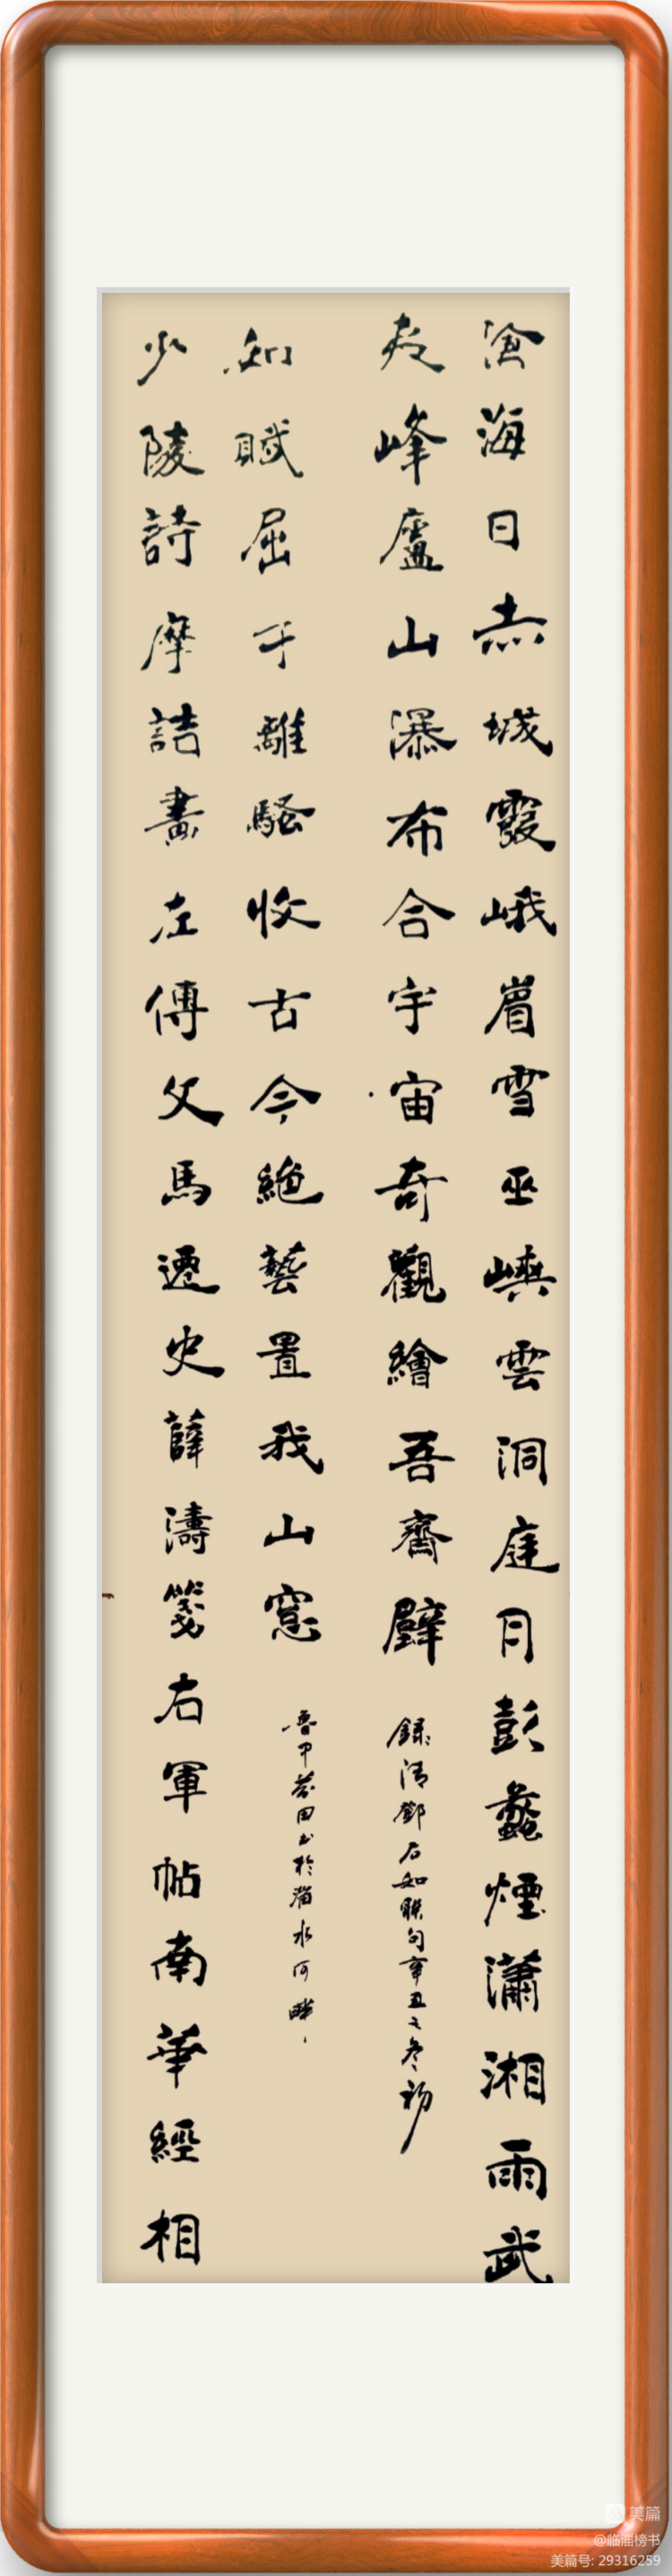 滄海日赤城霞峨眉雪巫峽雲洞庭月彭蠡煙瀟湘雨武
夷峰廬山瀑布合宇宙奇觀繪吾齋壁
錄清鄧石如聯句辛丑之冬初
少陵詩摩詰畫左傳文馬遷史薛濤箋右軍帖南華經相
如賦屈子離騷收古今絕藝置我山窓
魯中田书於淄水河畔
美篇
@临淄榜书
美篇号: 29316259